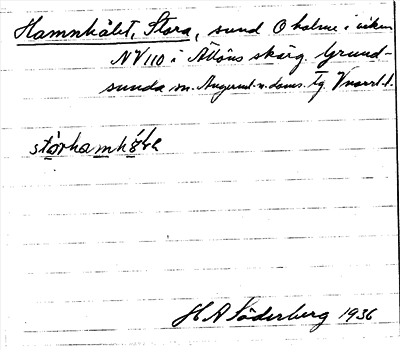 Hamnhålet, Stora, sund O holme i viken
NV 110 i Ålöns skärg. Grund-
sunda sn. Ångerml. v. doms. Tg. Vnorrl. l.
stórhamhå̀lε
H A Söderberg 1936